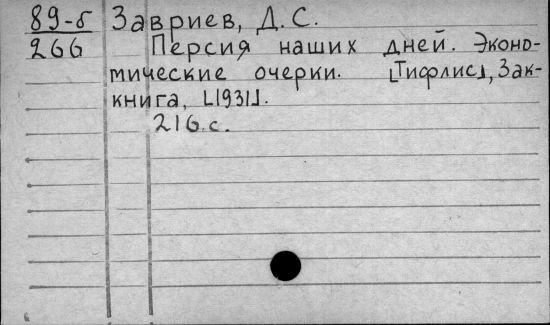 89-б Завриев, Д. С.
266 Персия наших дней. Эконо-
мические очерки. [Тифлис], Зак-
книга, [1931].
216 с.